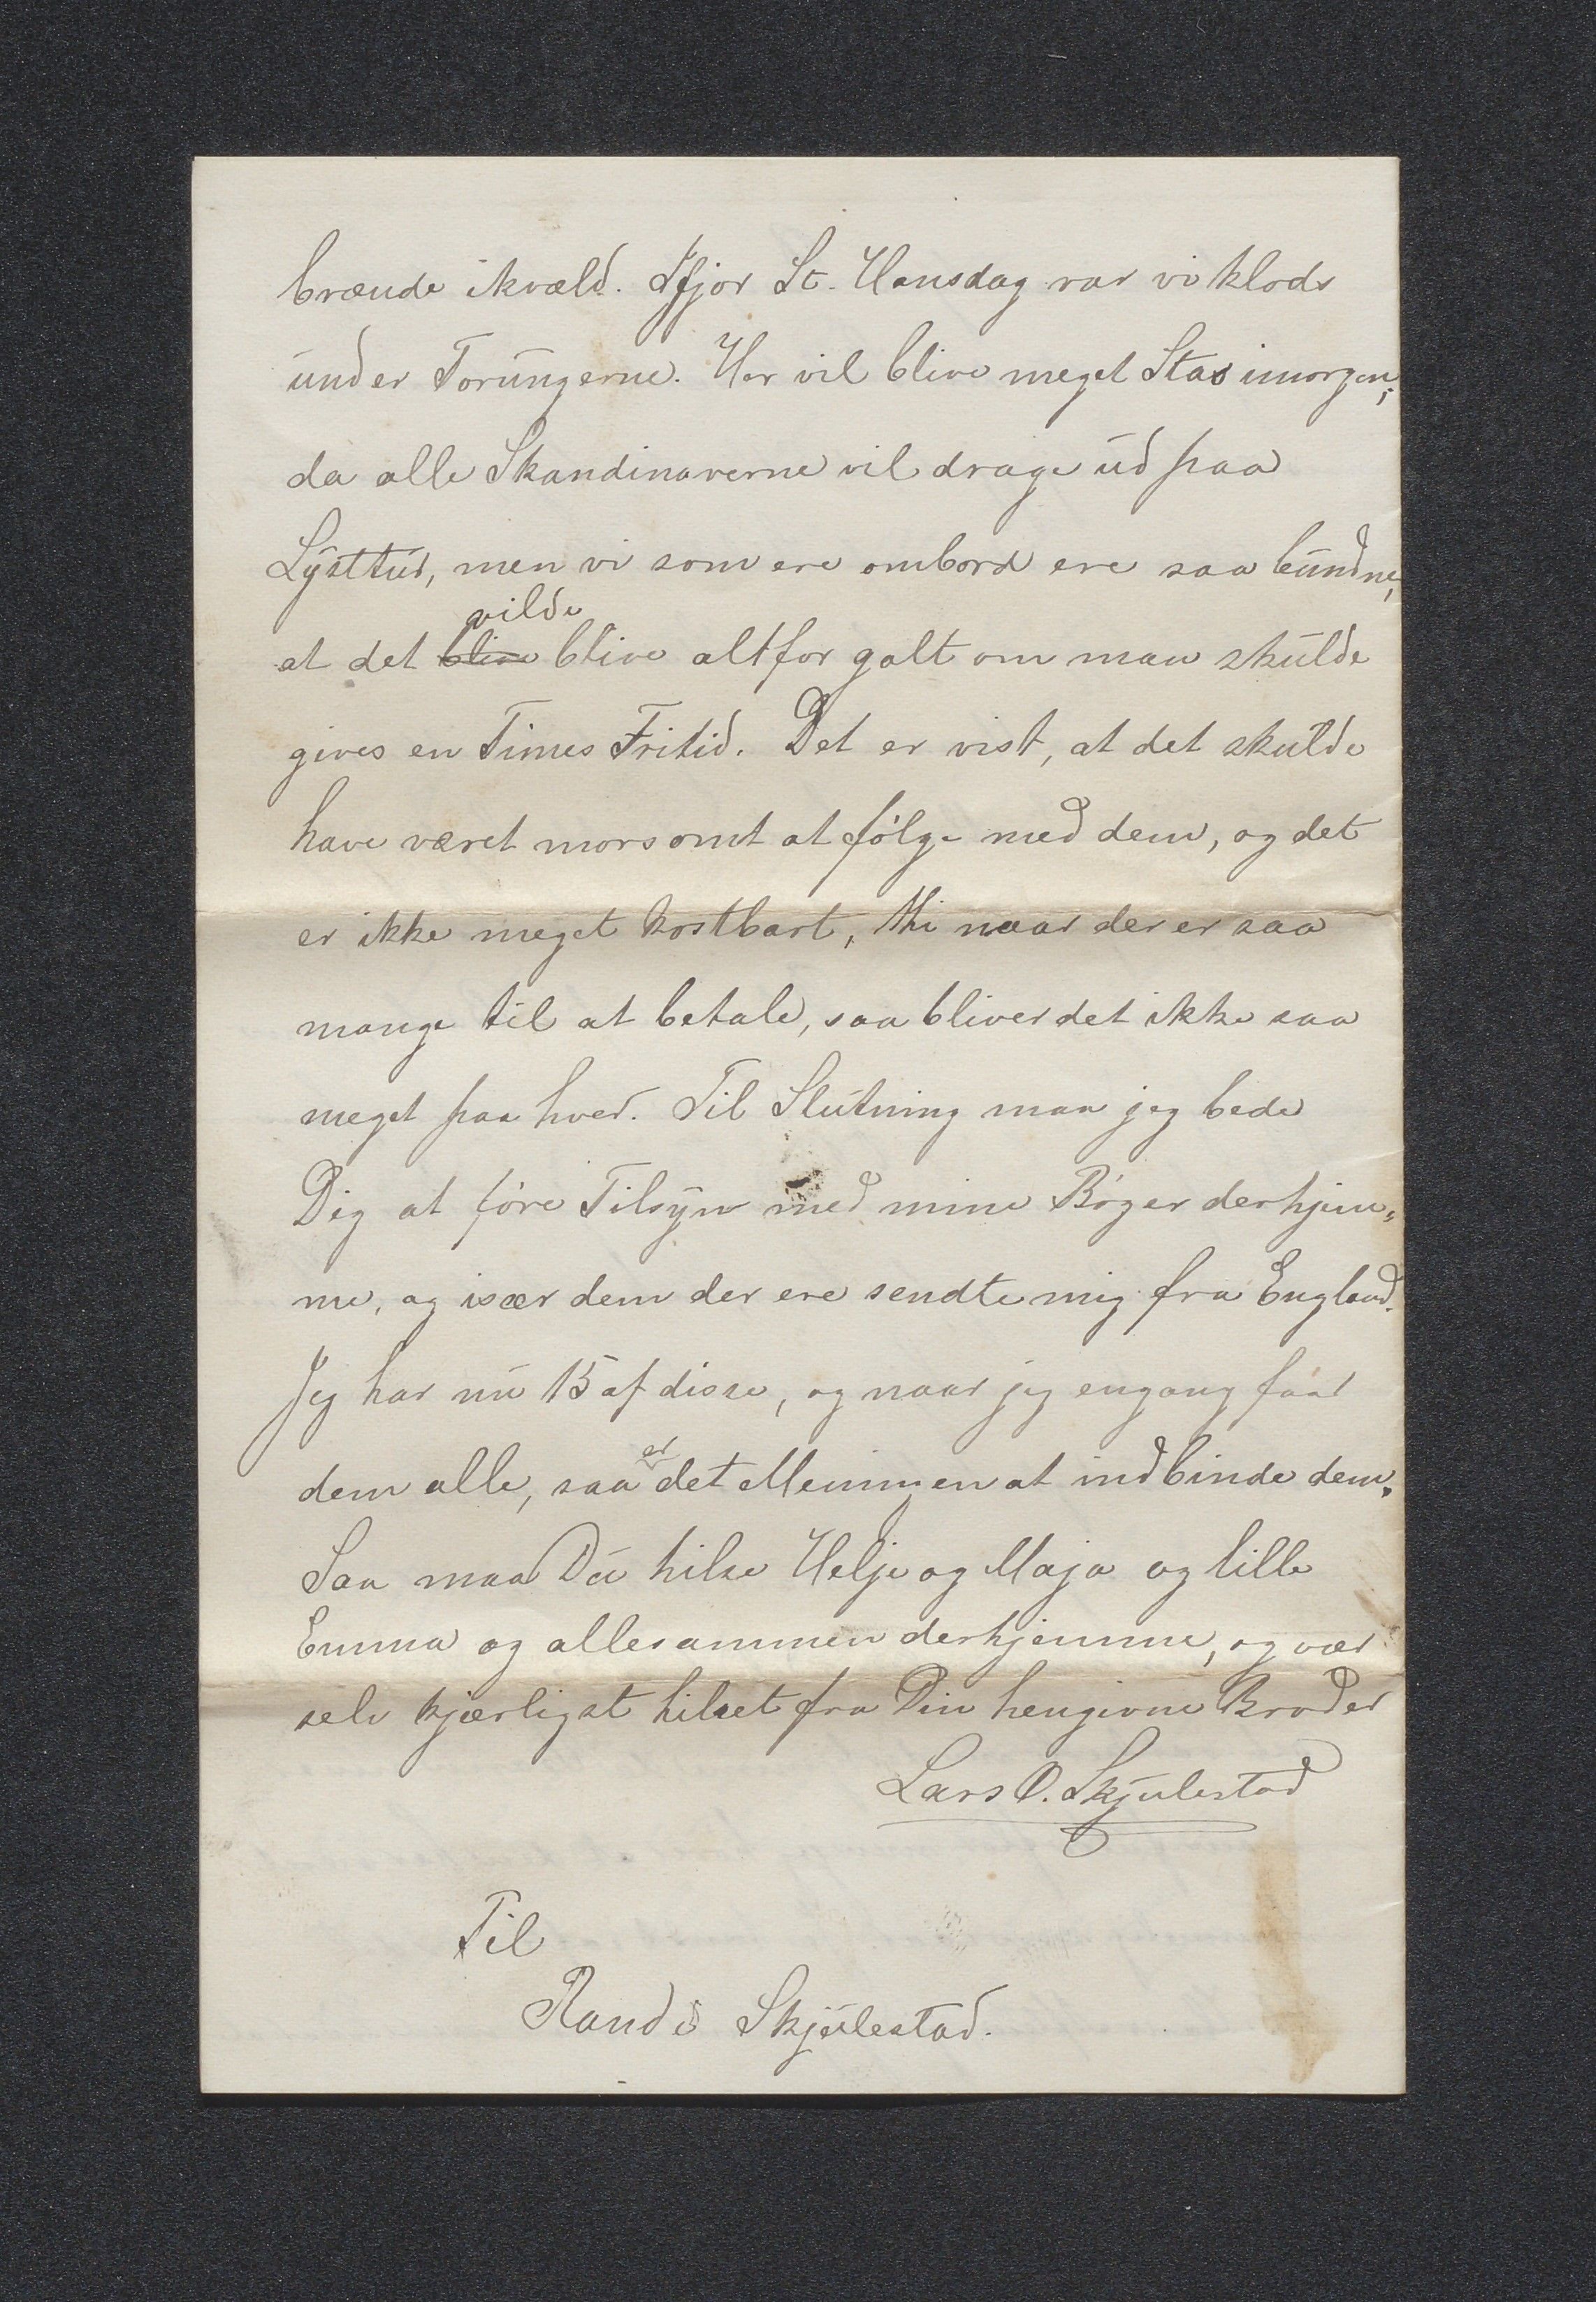 brænde ikvæld. Ifjor St. Hansdag var vi klods
under Torungerne. Her vil blive meget Stas imorgen,
da alle Skandinaverne vil drage ud paa
Lysttur, men vi som ere ombord ere saa bundne,
vilde
at det blive blive altfor galt om man skulde
gives en Times Fritid. Det er vist, at det skulde
have været morsomt at følge med dem, og det
er ikke meget kostbart, thi naar der er saa
mange til at betale, saa bliver det ikke saa
meget paa hver. Til Slutning maa jeg bede
Dig at føre Tilsyn med mine Bøger derhjem„
me, og især dem der ere sendte mig fra England.
Jeg har nu 15 af disse, og naar jeg engang faar
er
dem alle, saa det Meningen at indbinde dem.
Saa maa Du hilse Helje og Maja og lille
Emma og allesammen derhjemme, og vær
selv kjærligst hilset fra Din hengivne Broder
Lars O. Skjulestad
Til
Randi Skjulestad.